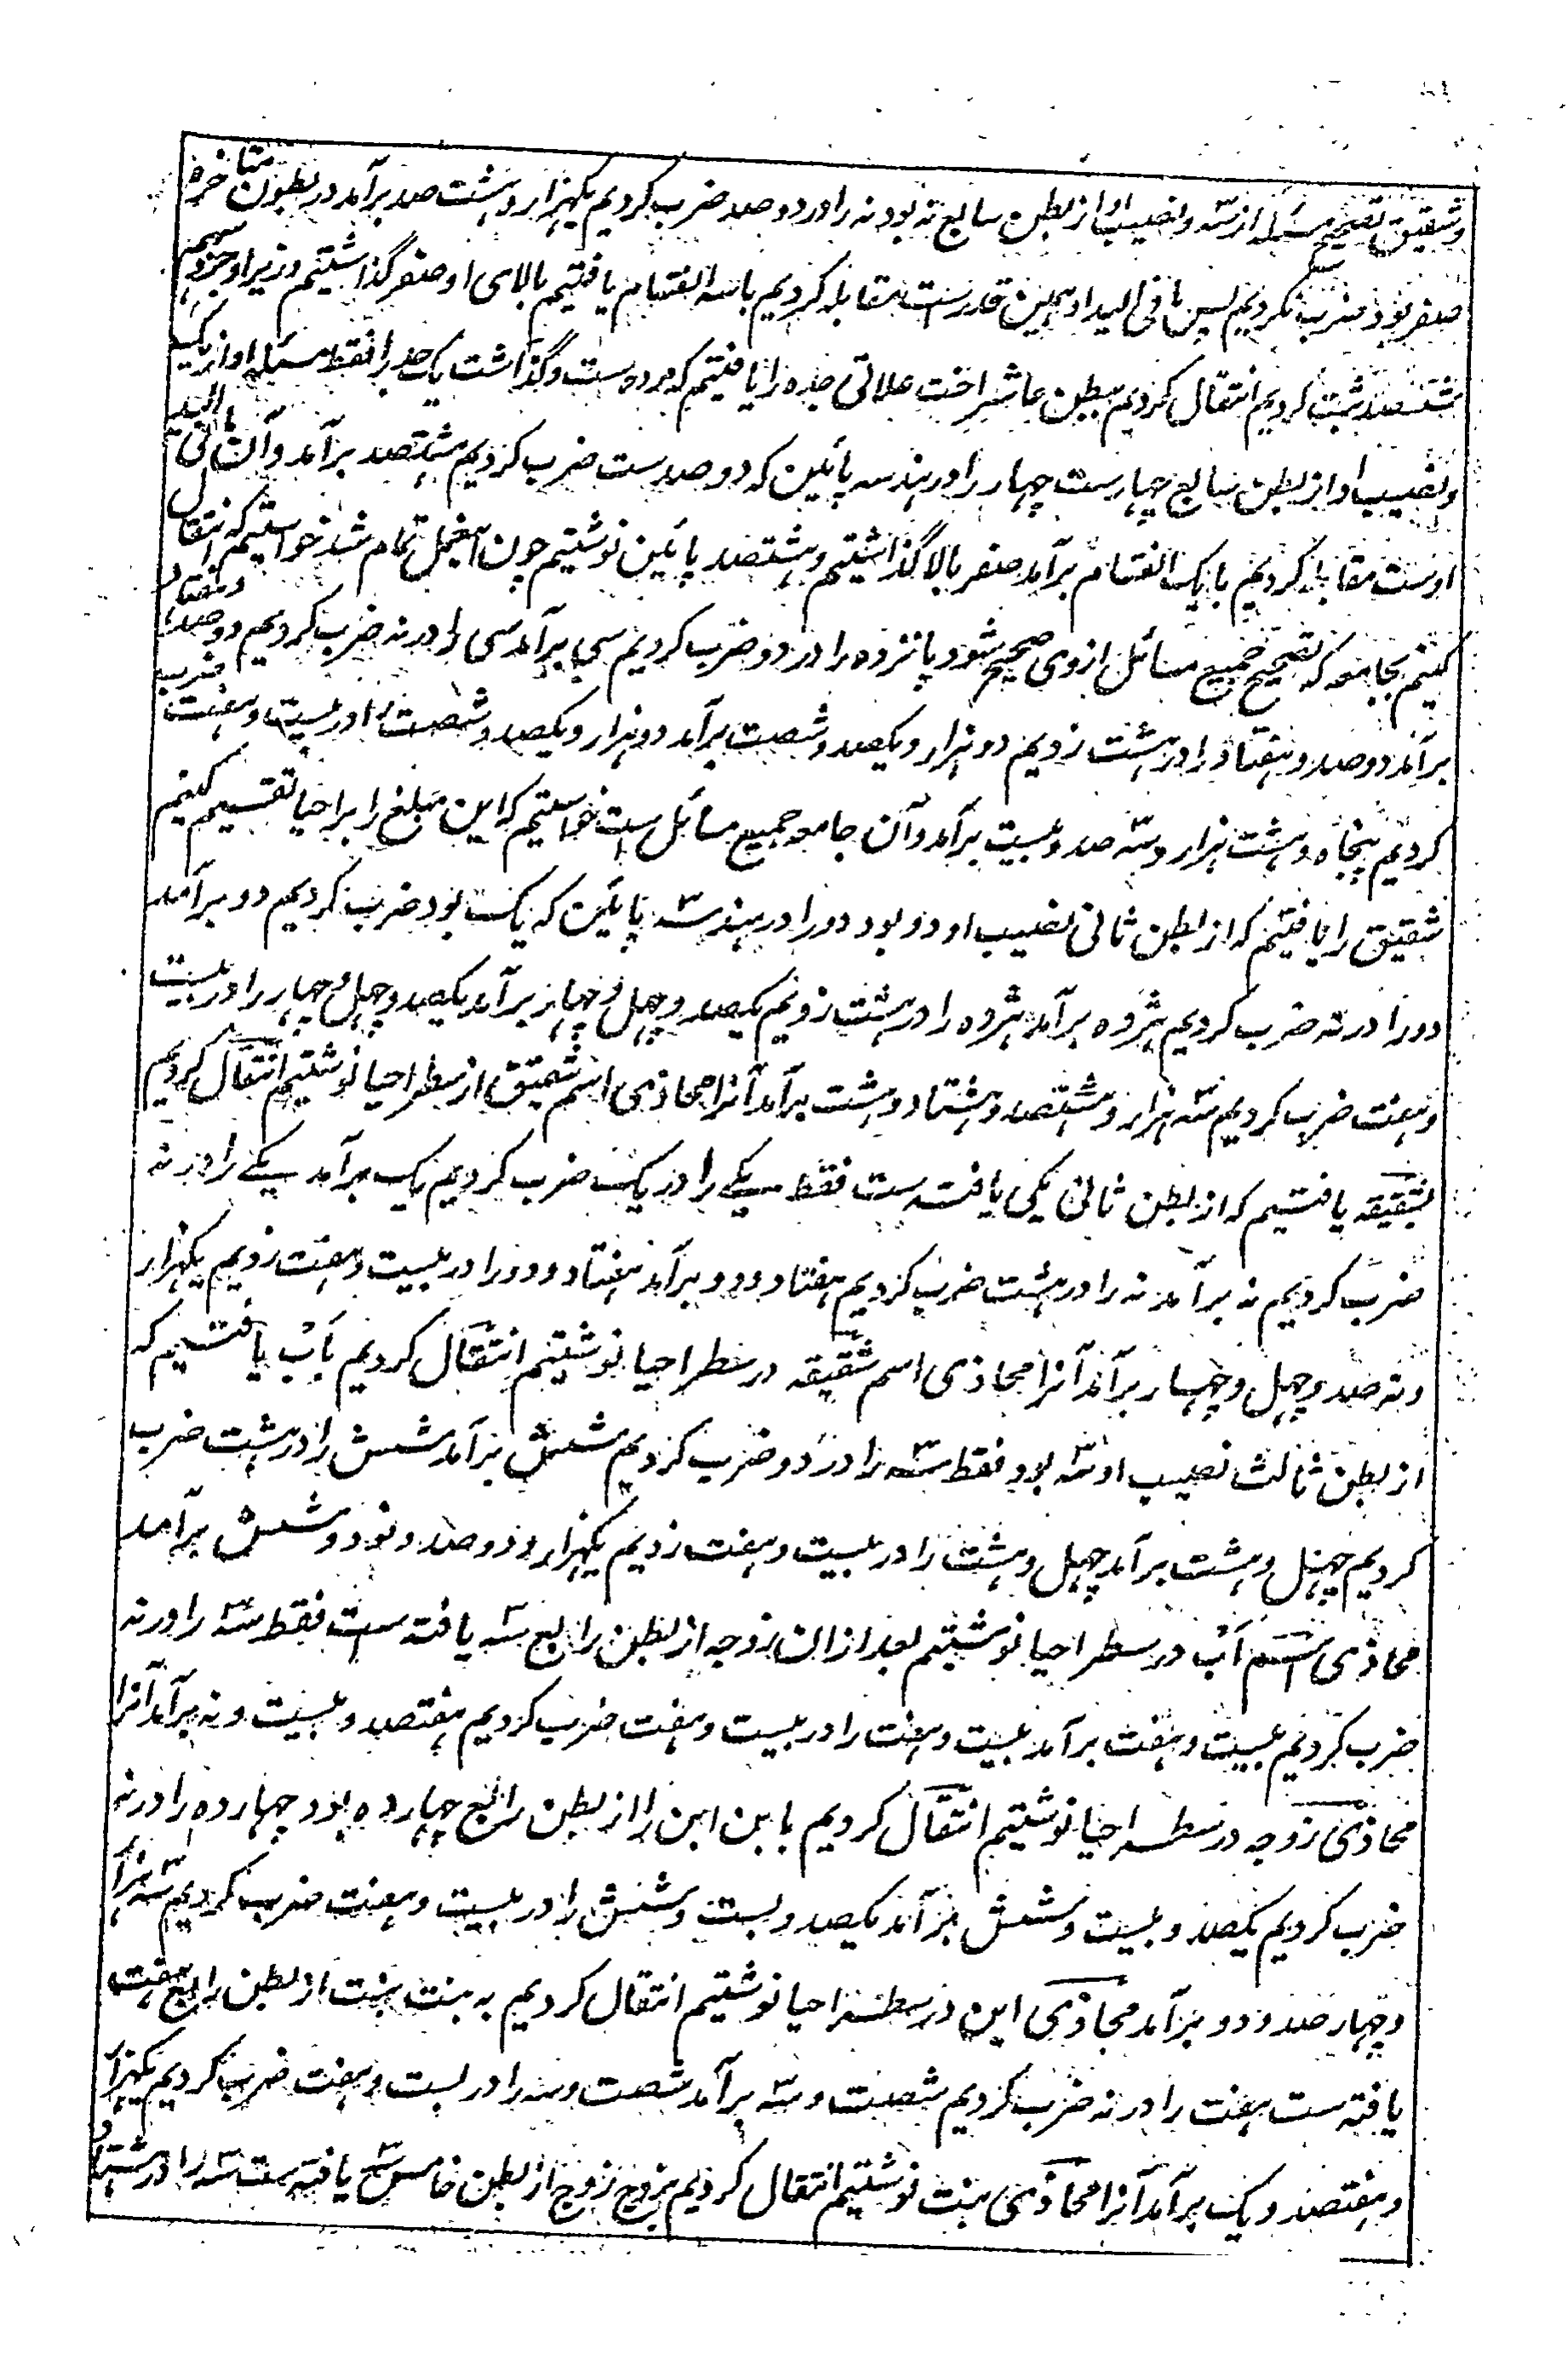 وشقیق تصحیح مسئله از سه و نصیب او از بطن سابع نه بود نه را در دو صد ضرب کردیم یکهزار و هشت صد برآمد در بطون متاخره
صفر بود ضرب نکردیم پس ما فی الید او همین قدرست مقابله کردیم با سه انقسام یافتیم بالای او صفر گذاشتیم و زیر او جزو سهم
ششصد ثبت کردیم انتقال کردیم ببطن عاشر اخت علاتی جده را یافتیم که مرده ست و گذاشت یک جد را فقط مسئله او از یک
و نصیب او از بطن سابع چهارست چهار را در هندسه پائین که دو صدست ضرب کردیم هشتصد برآمد و آن ما فی الید
اوست مقابله کردیم با یک انقسام برآمد صفر بالا گذاشتیم و هشتصد پائین نوشتیم چون اینعمل تمام شد خواستیم که انتقال
کنیم بجامعه که تصحیح جمیع مسائل از وی صحیح شود پانزده را در دو ضرب کردیم سی برآمد سی را در نه ضرب کردیم دو صد و هفتاد
برآمد دو صد و هفتاد را در هشت زدیم دو هزار و یکصد و شصت برآمد دو هزار و یکصد و شصت را در بیست و هفت ضرب
کردیم پنجاه و هشت هزار و سه صد و بیست برآمد و آن جامعه جمیع مسائل است خواستیم که این مبلغ را بر احیا تقسیم کنیم
شقیق را یافتیم که از بطن ثانی نصیب او دو بود دو را در هندسه پائین که یکست بود ضرب کردیم دو برآمد
دو را در نه ضرب کردیم هژده برآمد هژده را در هشت زدیم یکصد و چهل و چهار برآمد یکصد و چهل و چهار را در بیست
و هفت ضرب کردیم سه هزار و هشتصد و هشتاد و هشت برآمد آنرا محاذی اسم شقیق از سطر احیا نوشتیم انتقال کردیم
بشقیقه یافتیم که از بطن ثانی یکی یافته ست فقط یکے را در یک ضرب کردیم یک برآمد یکے را در نه
ضرب کردیم نه برآمد نه را در هشت ضرب کردیم هفتاد و دو برآمد هفتاد و دو را در بیست و هفت زدیم یکهزار
و نه صد و چهل و چهار برآمد آنرا محاذی اسم شقیقه در سطر احیا نوشتیم انتقال کردیم باب یافتیم که
از بطن ثالث نصیب او سه بود فقط سه را در دو ضرب کردیم شش برآمد شش را در هشت ضرب
کردیم چهل و هشت برآمد چهل و هشت را در بیست و هفت زدیم یکهزار و دو صد و نود و شش برآمد
محاذی اسم اب در سطر احیا نوشتیم بعد ازان زوجه از بطن رابع سه یافته ست فقط سه را در نه
ضرب کردیم بیست و هفت برآمد بیست و هفت را در بیست و هفت ضرب کردیم هفتصد و بیست و نه برآمد آنرا
محاذی زوجه در سطر احیا نوشتیم انتقال کردیم بابن ابن را از بطن رابع چهارده بود چهارده را در نه
ضرب کردیم یکصد و بیست و شش برآمد یکصد و بست و شش را در بیست و هفت ضرب کردیم سه هزار
و چهار صد و دو برآمد محاذی ابن در سطر احیا نوشتیم انتقال کردیم به بنت بنت از بطن رابع هفت
یافته ست هفت را در نه ضرب کردیم شصت و سه برآمد شصت و سه را در بست و هفت ضرب کردیم یکهزار
و هفتصد و یک برآمد آنرا محاذی بنت نوشتیم انتقال کردیم بزوج زوج از بطن خامس سه یافته ست سه را در هشتاد و